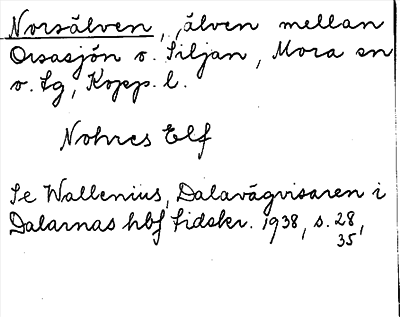 Norsälven, älven mellan
Orsasjön o. Siljan, Mora sn
o. Sg, Kopp. l.
Nohrcs Elf
Se Wallenius, Dalavägvisaren i
Dalarnas hbf tidskr. 1938, s. 28,
35